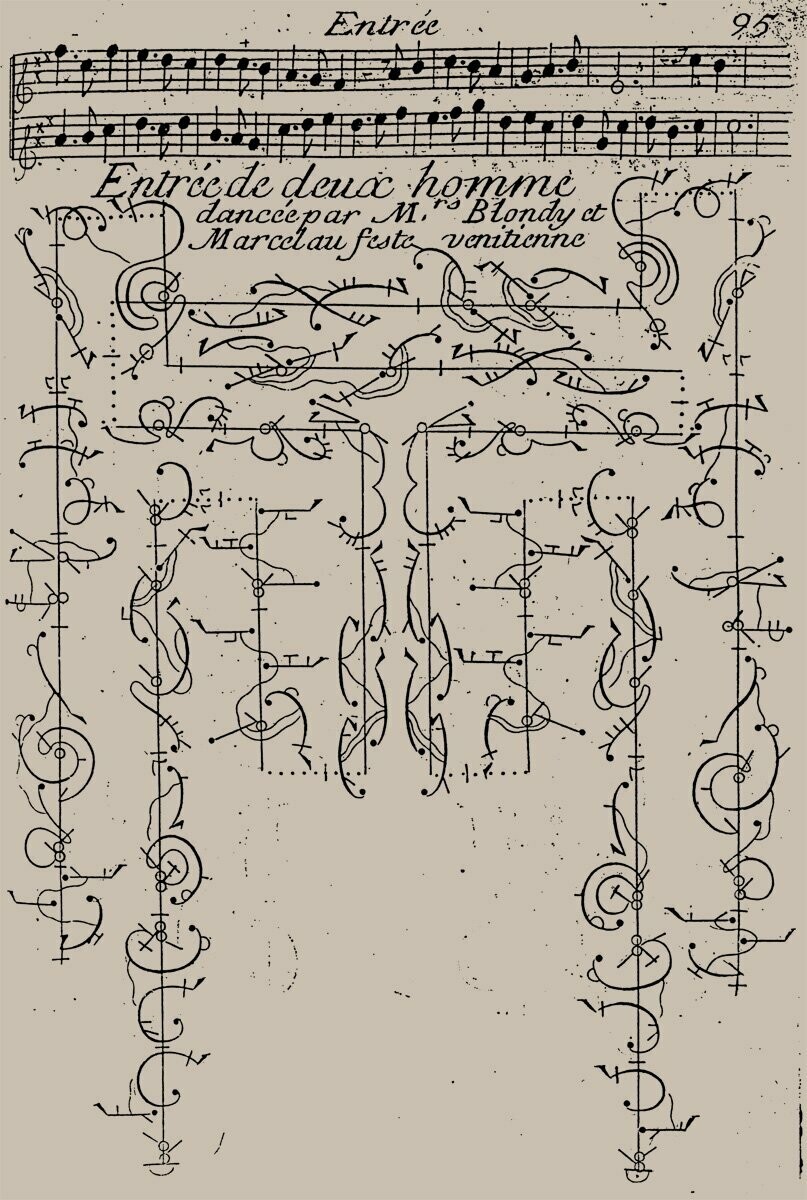 Entrée
95
Entrée de deux homme
dancée par M.rs Blondy et
Marcel au feste venitienne